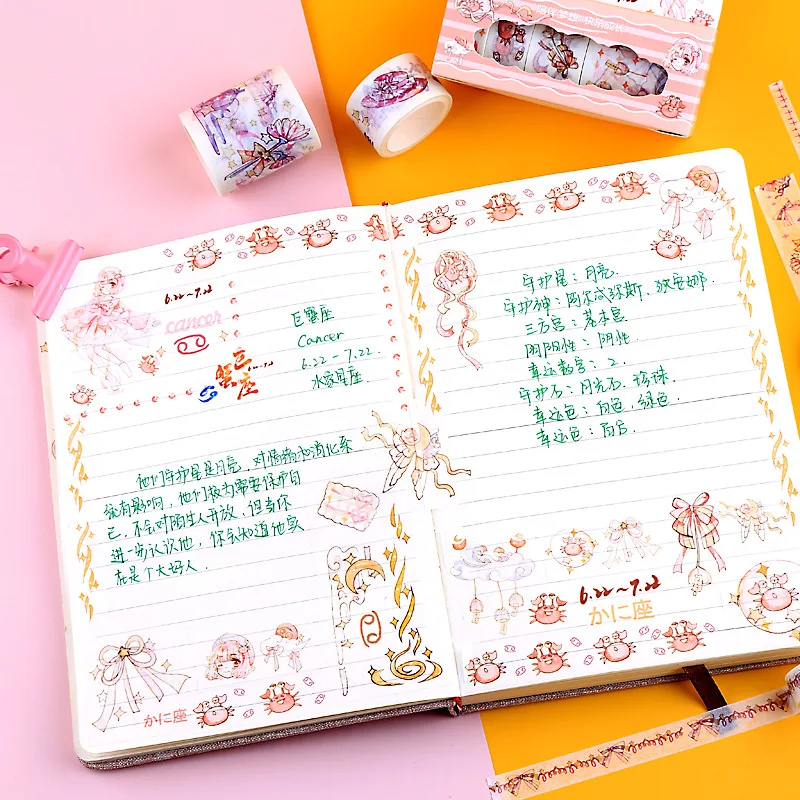 陪伴梦想 快乐成长
6.22~7.22
cancer
巨蟹座
巨蟹座
Cancer
6.22-7.22.
水象星座
他们守护星是月亮,对情绪和消化系
统有影响,他们极为需要保护自
己,不会对陌生人开放,但当你
进一步认识他,你会知道他实
在是个大好人.
かに座
守护星:月亮.
守护神:阿尔忒弥斯、狄安娜.
三方宫:基本宫
阴阳性:阴性
幸运数字:2.
守护石:月光石、珍珠.
幸运色:白色、绿色.
幸运色:
6.22~7.22
かに座